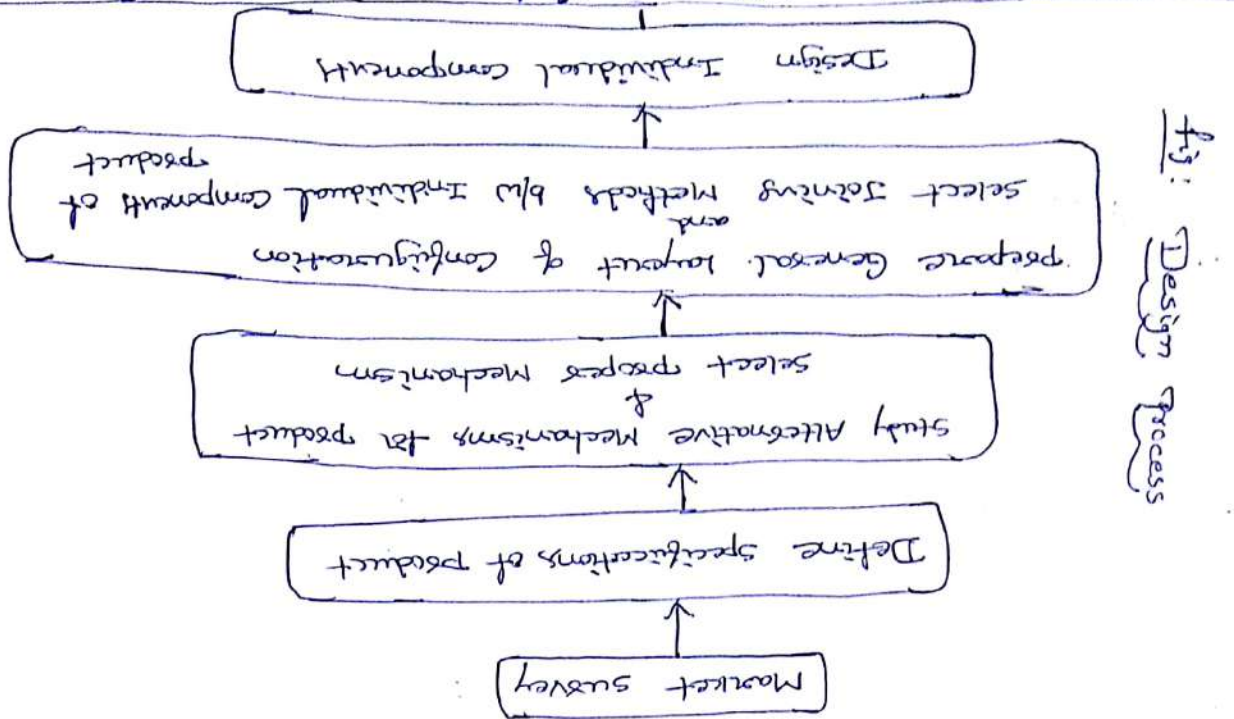 Market survey
Define specifications of product
Study Alternative Mechanisms for product
&
select proper Mechanism
prepare General layout of Configuration
and
select Joining Methods b/w Individual Components of
product
Design Individual Components
fig: Design Process